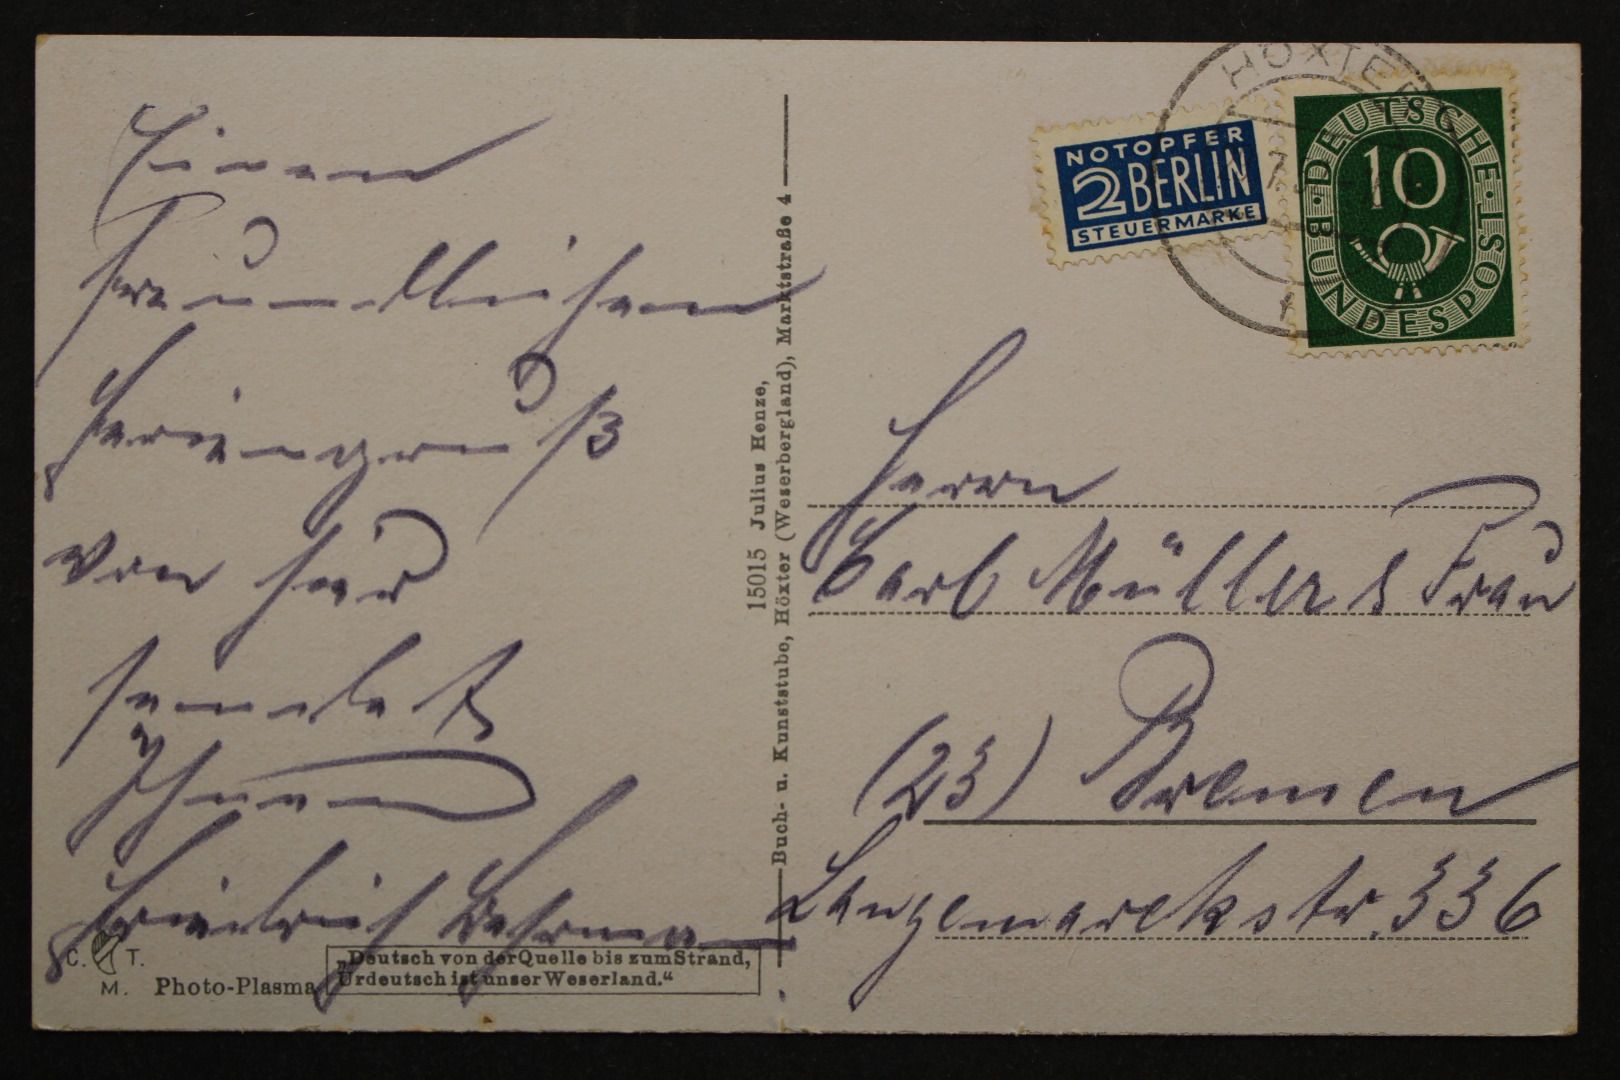 Einen
freundlichen
Feriengruß
von hier
sendet
Ihnen
Friedrich
C. T.
M. Photo-Plasma
„Deutsch von der Quelle bis zum Strand,
Urdeutsch ist unser Weserland.“
15015 Julius Henze,
Buch- u. Kunststube, Höxter (Weserbergland), Marktstraße 4
NOTOPFER
2 BERLIN
STEUERMARKE
HÖXTER
DEUTSCHE · POST · BUNDESPOST
10
Herrn
Carl Müller & Frau
(23) Bremen
Langemarckstr. 336